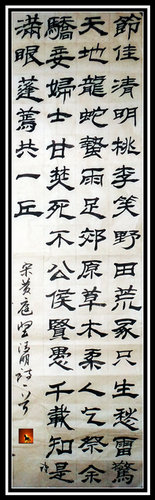 節佳清明桃李笑野田荒冢只生愁雷驚
天地龍蛇蟄雨足郊原草木柔人乞祭余
驕妾婦士甘焚死不公侯賢愚千載知是
滿眼蓬蒿共一丘
宋黄庭坚清明诗